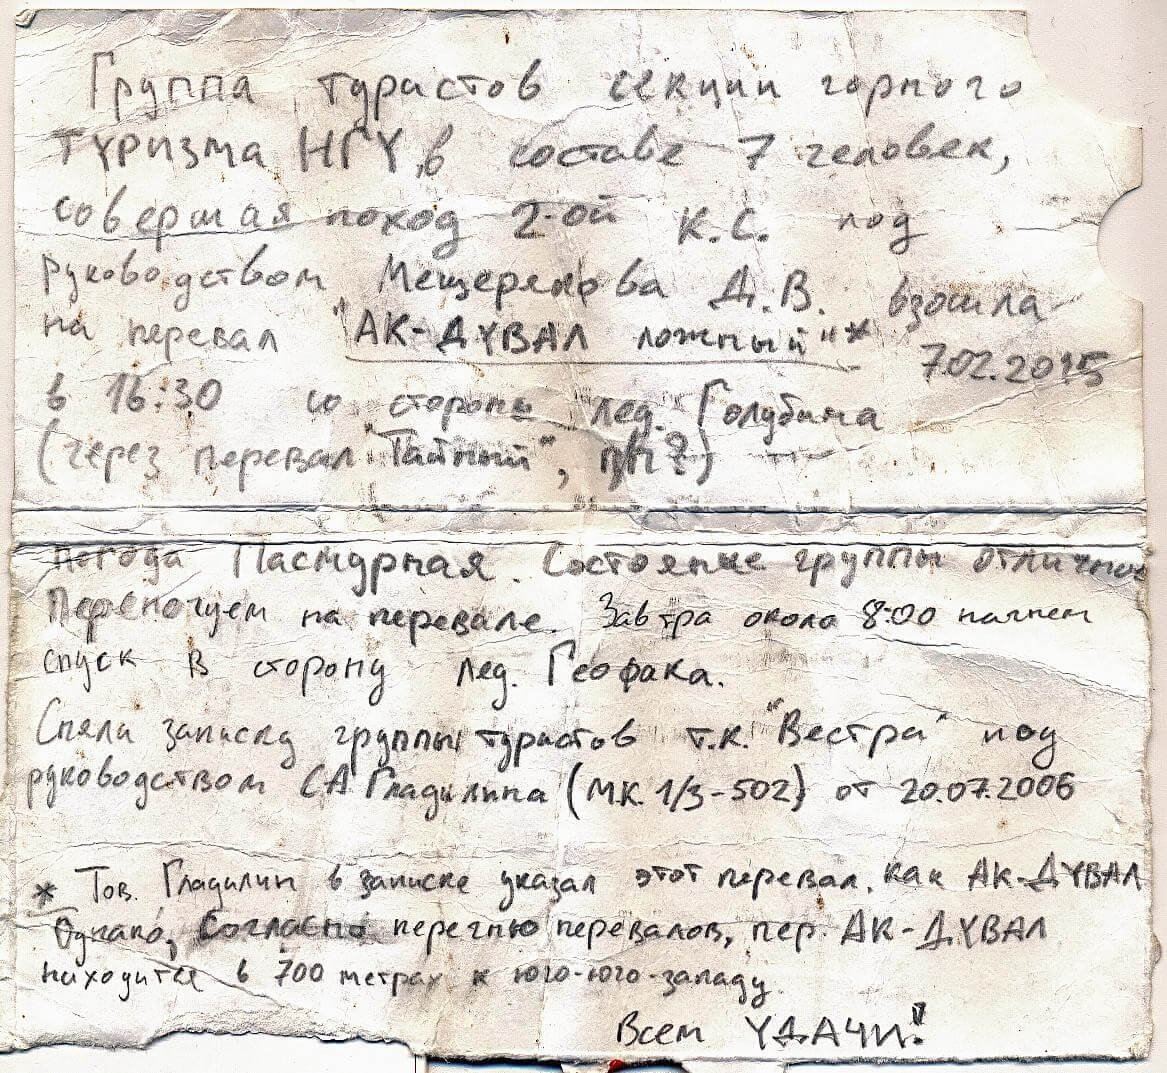 Группа туристов секции горного
туризма НГУ, в составе 7 человек,
совершая поход 2-ой К.С. под
руководством Мещерякова Д.В. взошла
на перевал "АК-ДУВАЛ ложный"* 7.02.2015
в 16:30 со стороны лед. Голубина
(через перевал "Тайный",
погода Пасмурная. Состояние группы отличное
Переночуем на перевале. Завтра около 8:00 начнем
спуск в сторону лед. Геофака.
Сняли записку группы туристов т.к. "Вестра" под
руководством С.А. Гладилина (М.К. 1/3-502) от 20.07.2006
* Тов. Гладилин в записке указал этот перевал, как АК-ДУВАЛ
Однако, Согласно перечню перевалов, пер. АК-ДУВАЛ
находится в 700 метрах к юго-юго-западу.
Всем УДАЧИ!